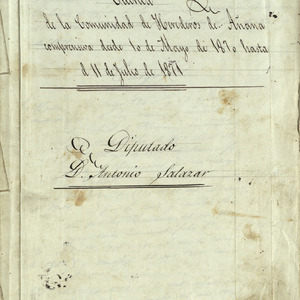 de la Comunidad de Herederos de Añana
comprensiva desde 1º de Mayo de 1870 hasta
el 11 de Julio de 1871
Diputado
D. Antonio Salazar